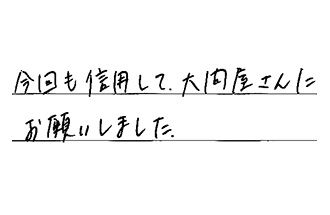 今回も信用して、大問屋さんに
お願いしました。